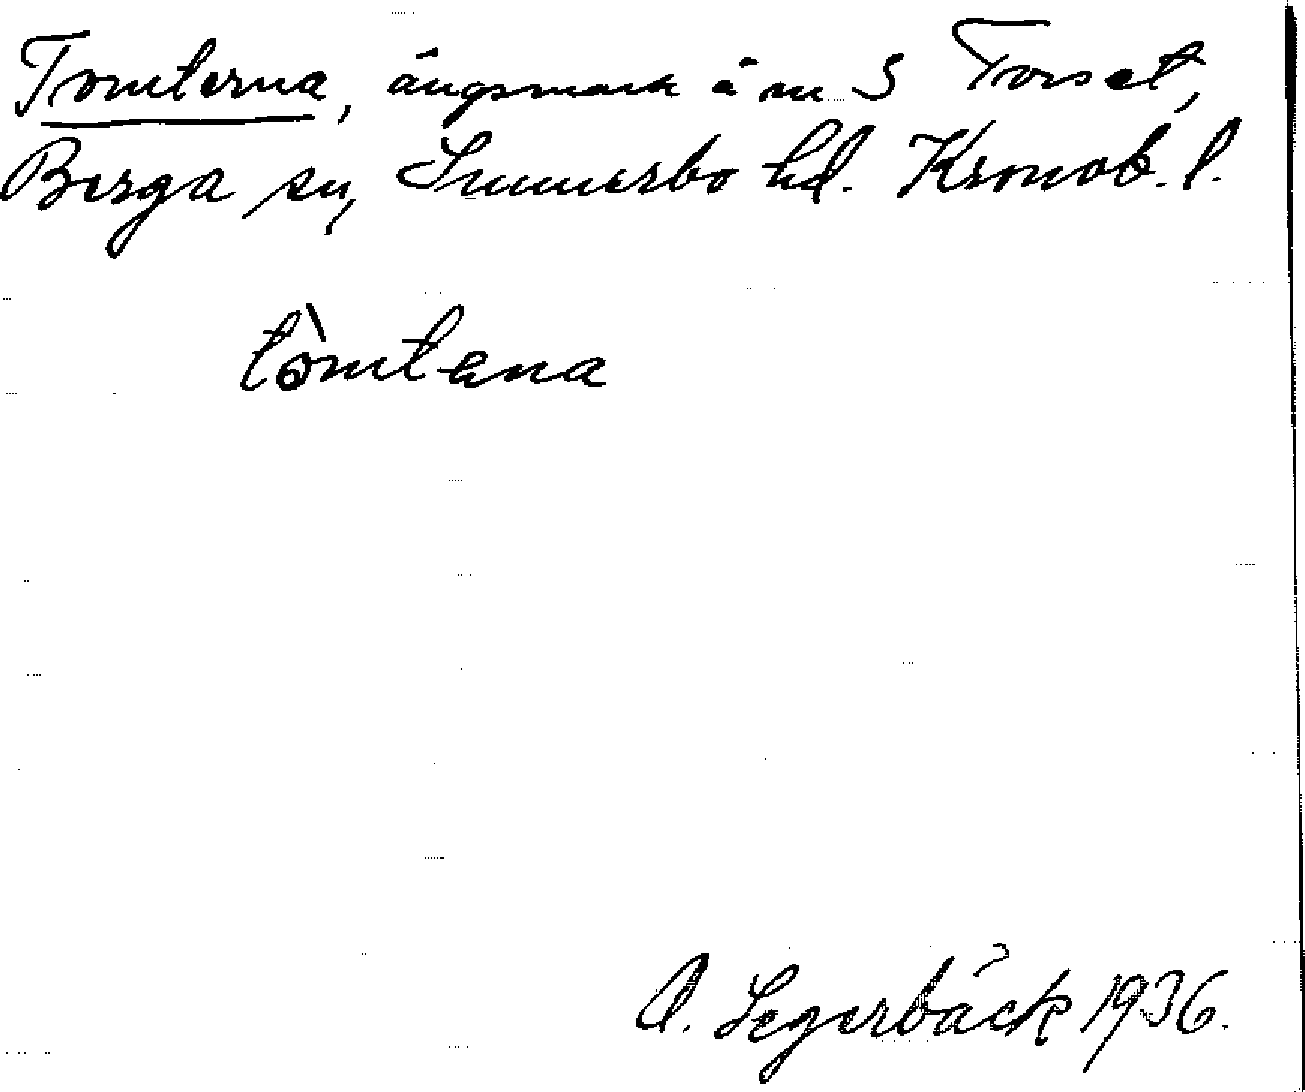 Tomterna, ängsmark å nr 5 Torset,
Berga sn, Sunnerbo hd. Kronob. l.
tòmtena
A. Segerbäck 1936.